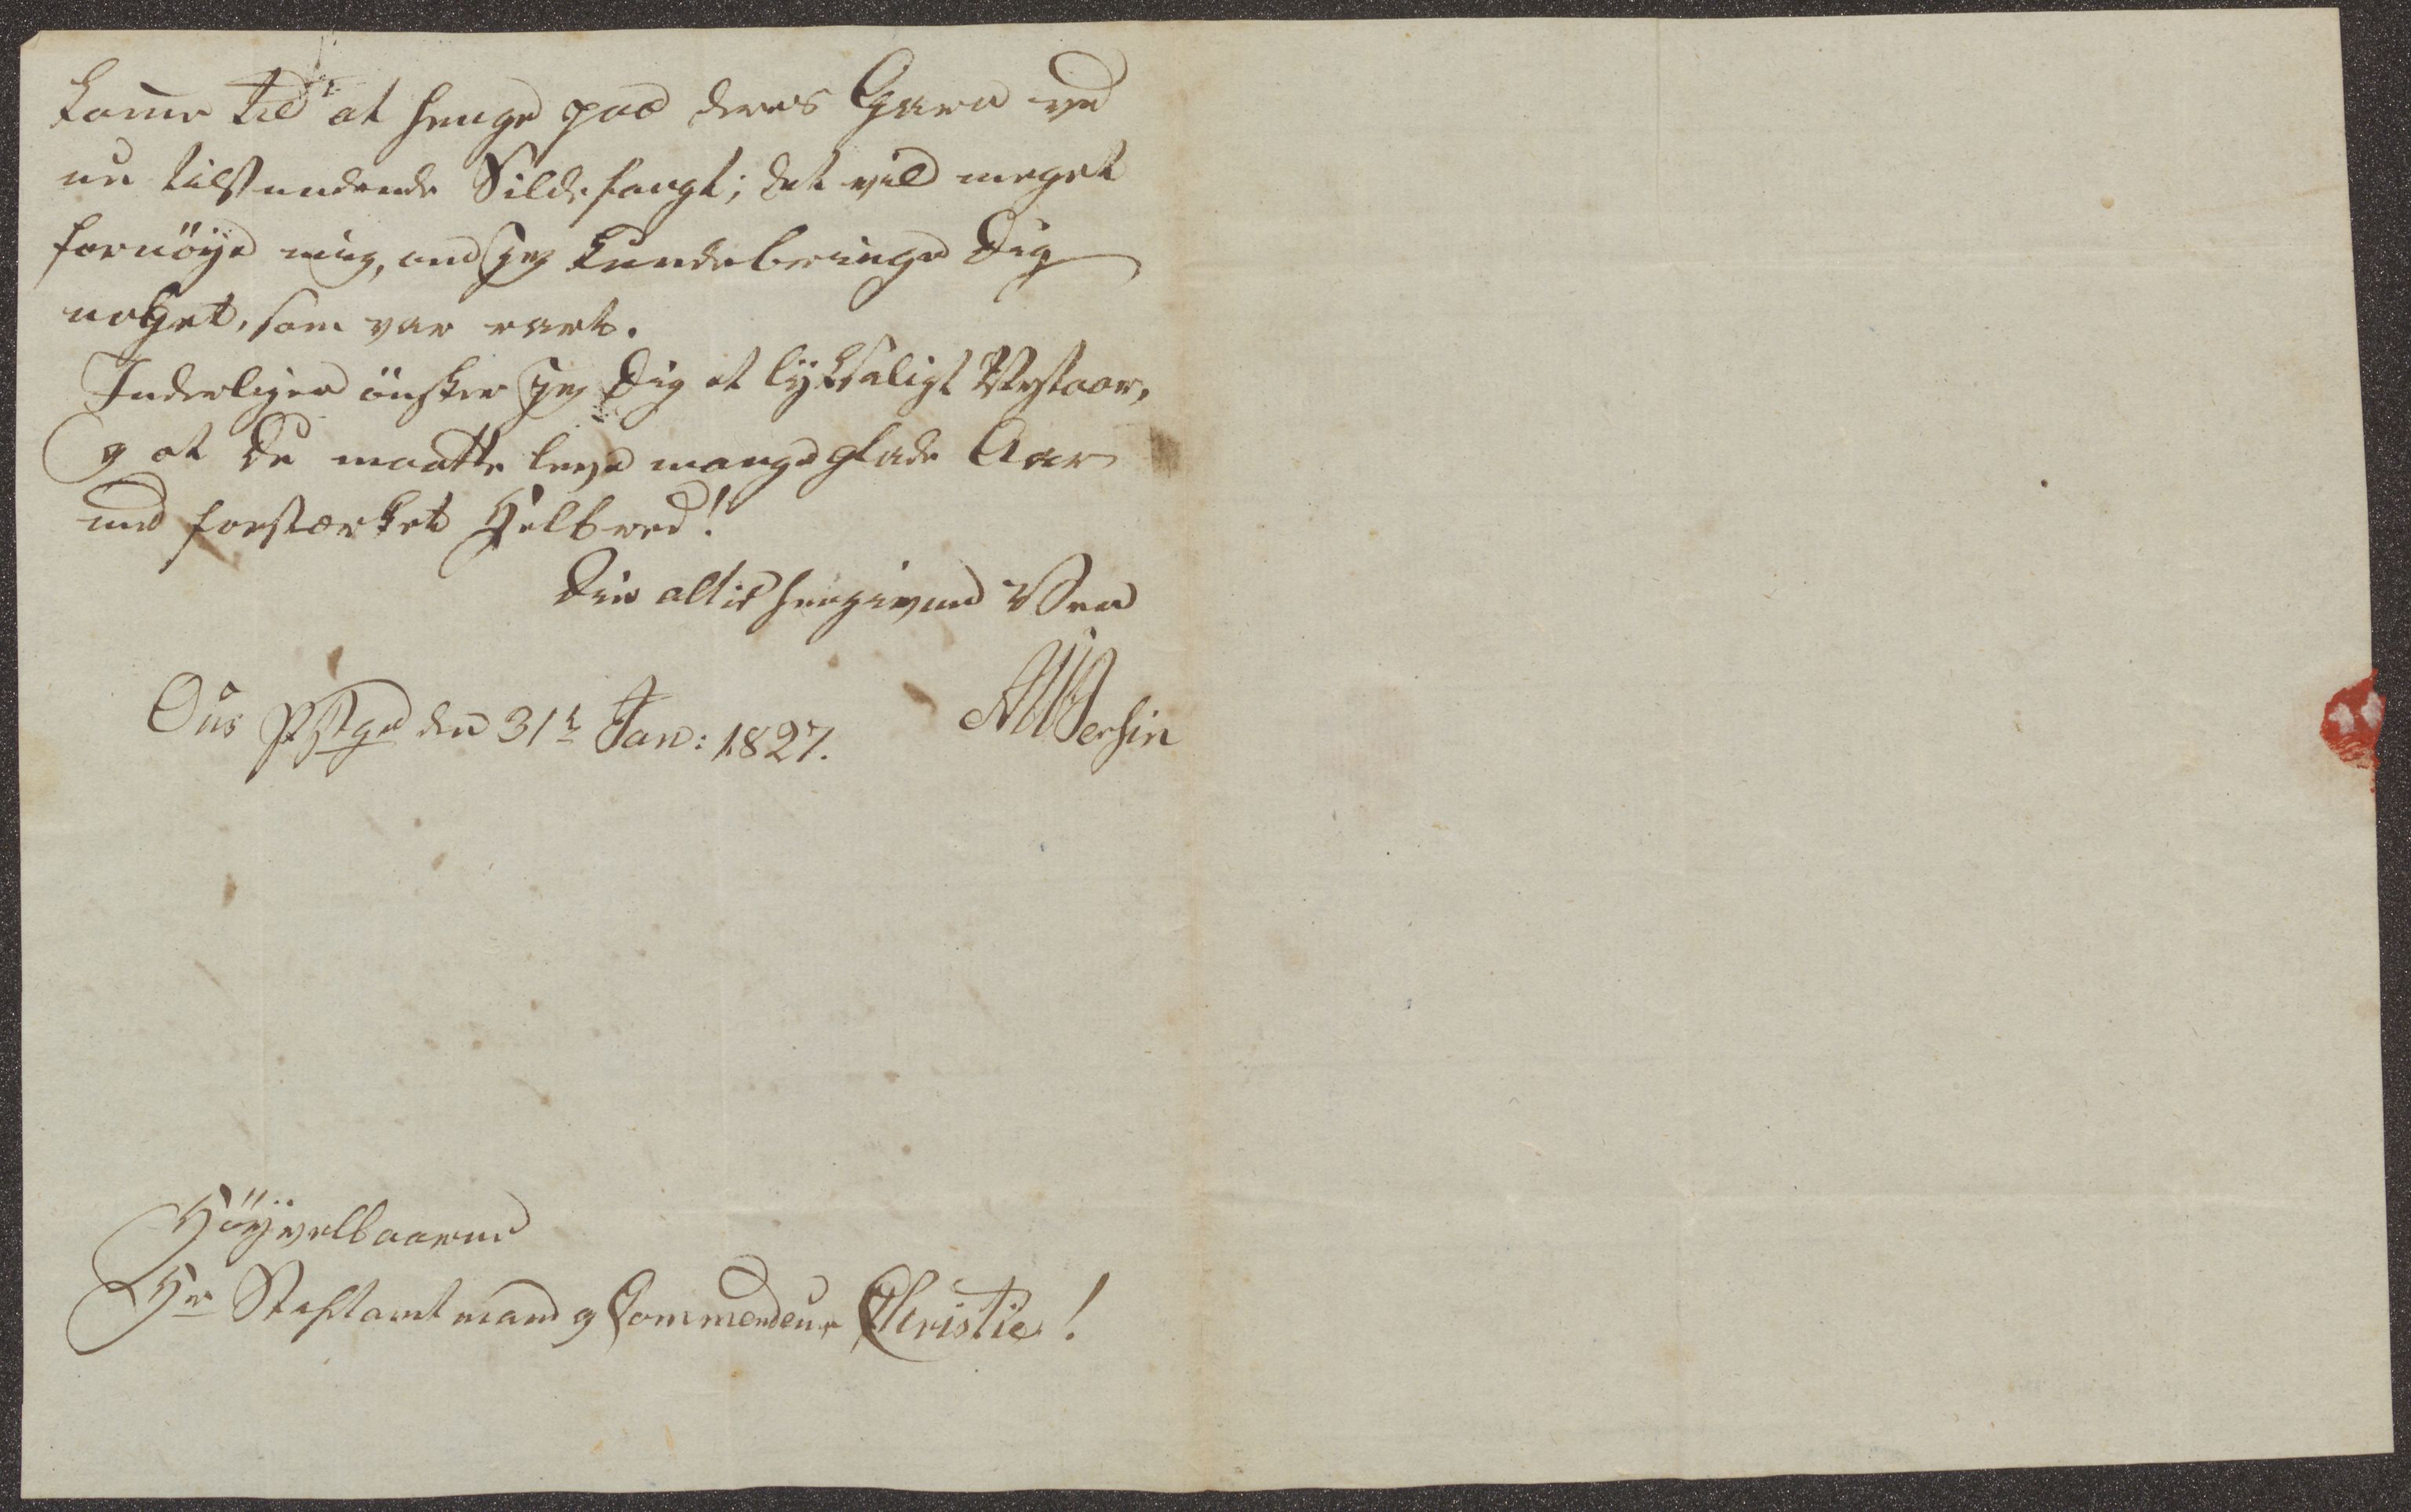 kom̅e til at henge paa deres Garn ved
nu tilstundende Sildefangt; det vild meget
fornöÿe mig, om jeg kunde bringe Dig
noget, som var rart.
Inderligen önsker jeg Dig et lÿksaligt Nytaar,
og at Du maatte leve mange glade Aar
med forstærket Helbred!
Din altid hengivne Ven
Ous Pstgd den 31t Jan: 1827.
Höÿvelbaarne
Hr Stiftamtmand og Commendeur Christie!